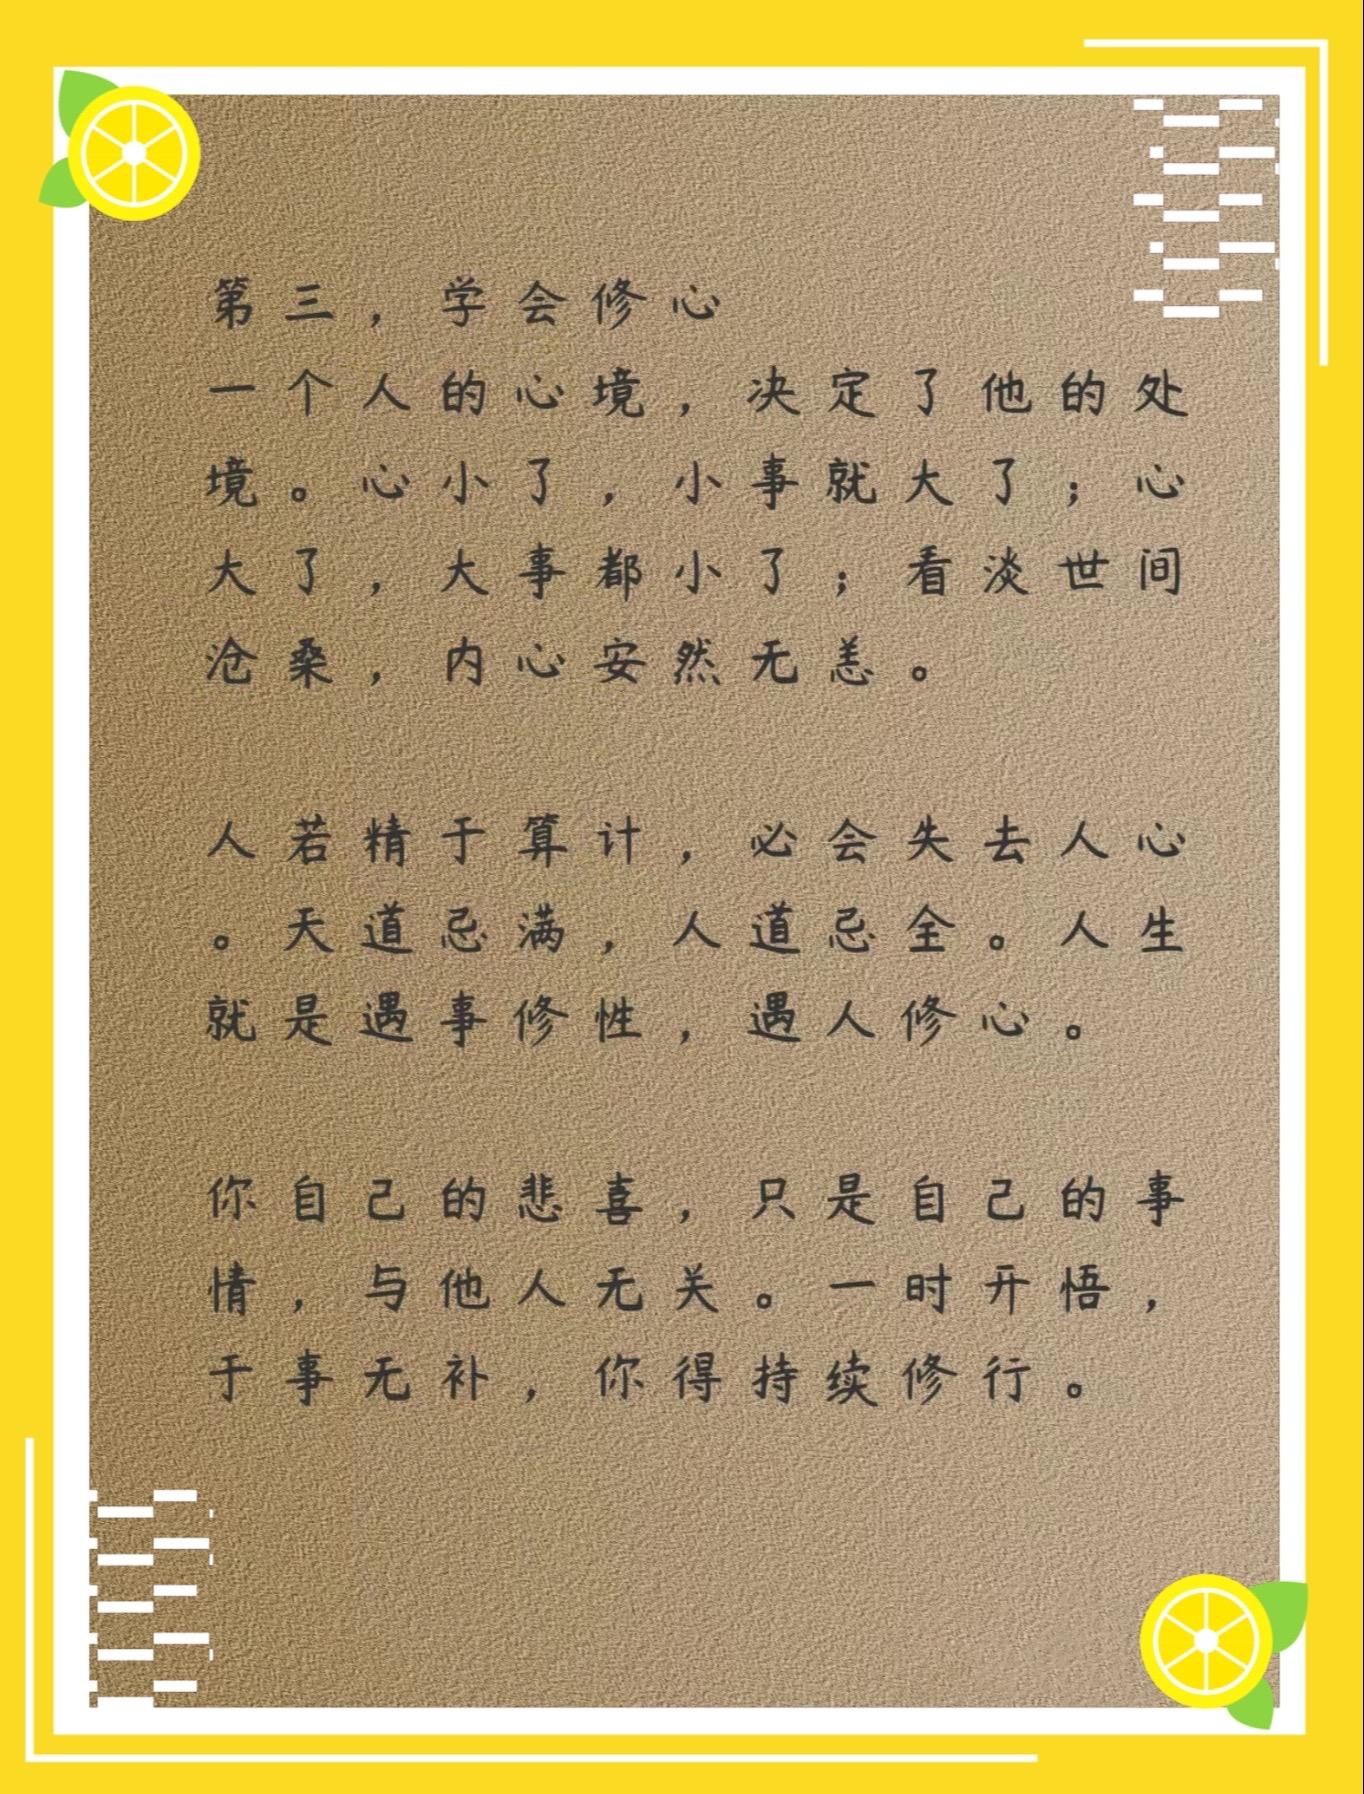 第三，学会修心
一个人的心境，决定了他的处
境。心小了，小事就大了；心
大了，大事都小了；看淡世间
沧桑，内心安然无恙。
人若精于算计，必会失去人心
。天道忌满，人道忌全。人生
就是遇事修性，遇人修心。
你自己的悲喜，只是自己的事
情，与他人无关。一时开悟，
于事无补，你得持续修行。